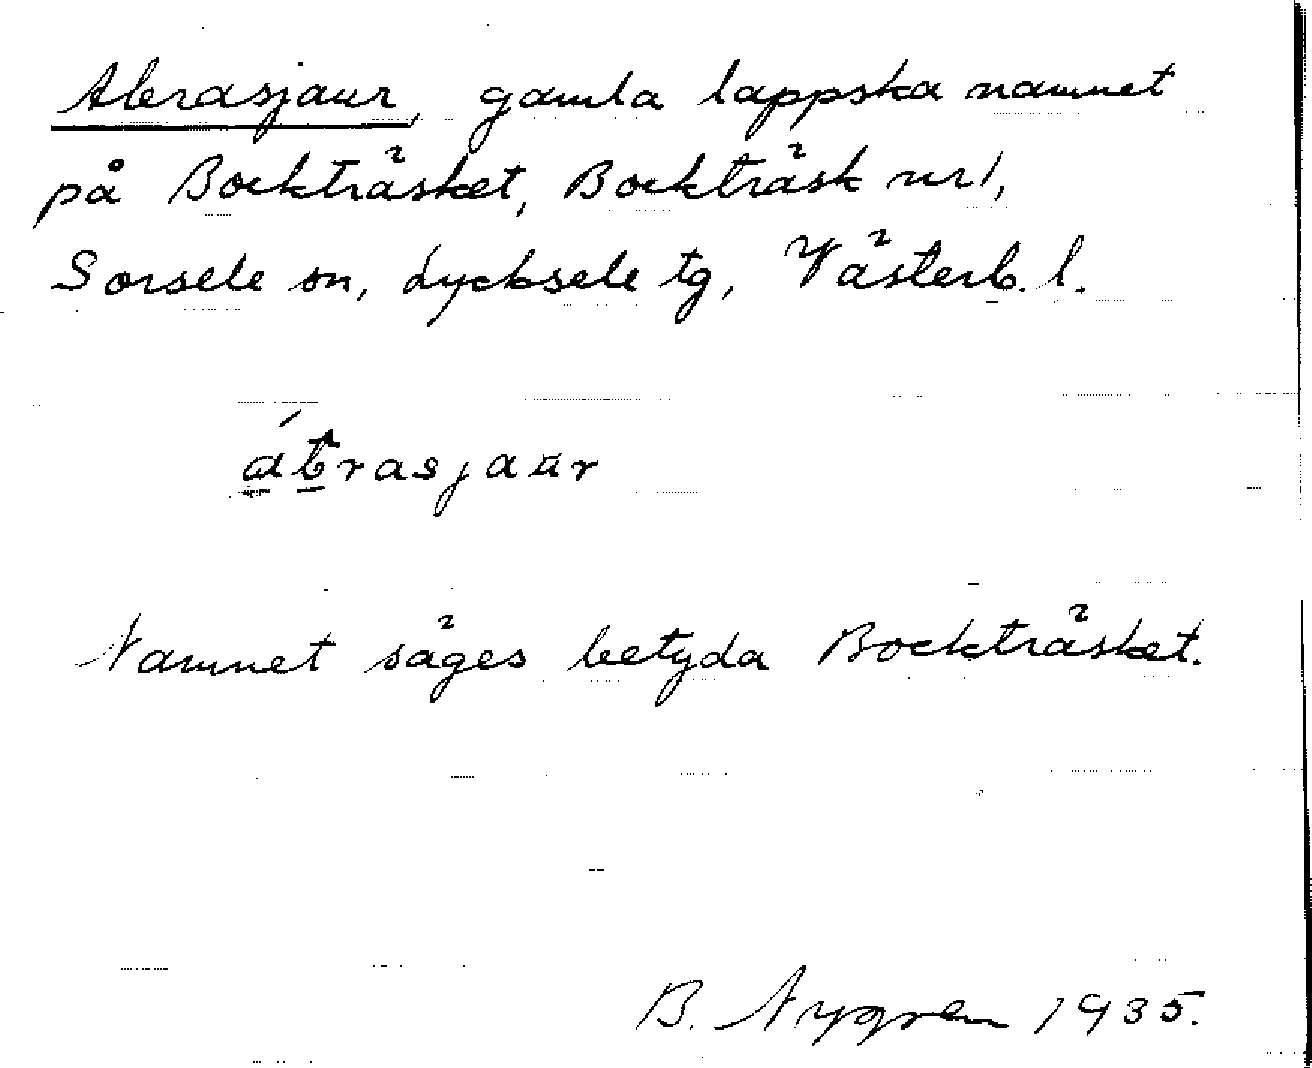 Abrasjaur, gamla lappska namnet
på Bockträsket, Bockträsk nr 1,
Sorsele sn, Lycksele tg, Västerb. l.
ábrasjaur
Namnet säges betyda Bockträsket.
B. Nygren 1935.